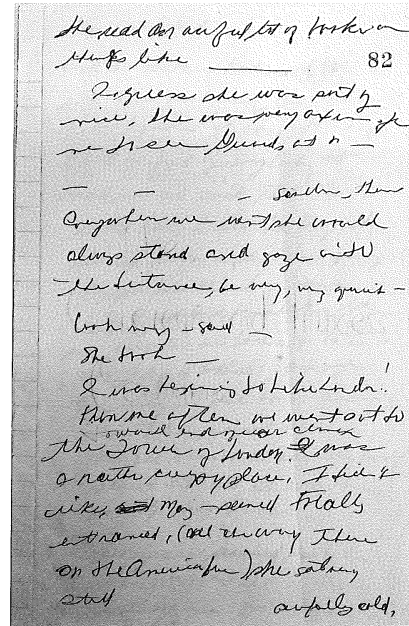 She read an awful lot of books on
things like ______
82
I guess she was sort of
nice, she was very
me to see Guards at
— — —
everywhere we went she would
always stand and gaze into
the distance, be very, very quiet —
Look very – sad —
She took —
I was begining to like London!
then one after we went out to
the Tower of London. I was
a rather creepy place, I didn't
like, May – seemed totally
entranced, (all the way there
on the American) she sat very
still
awfully cold,